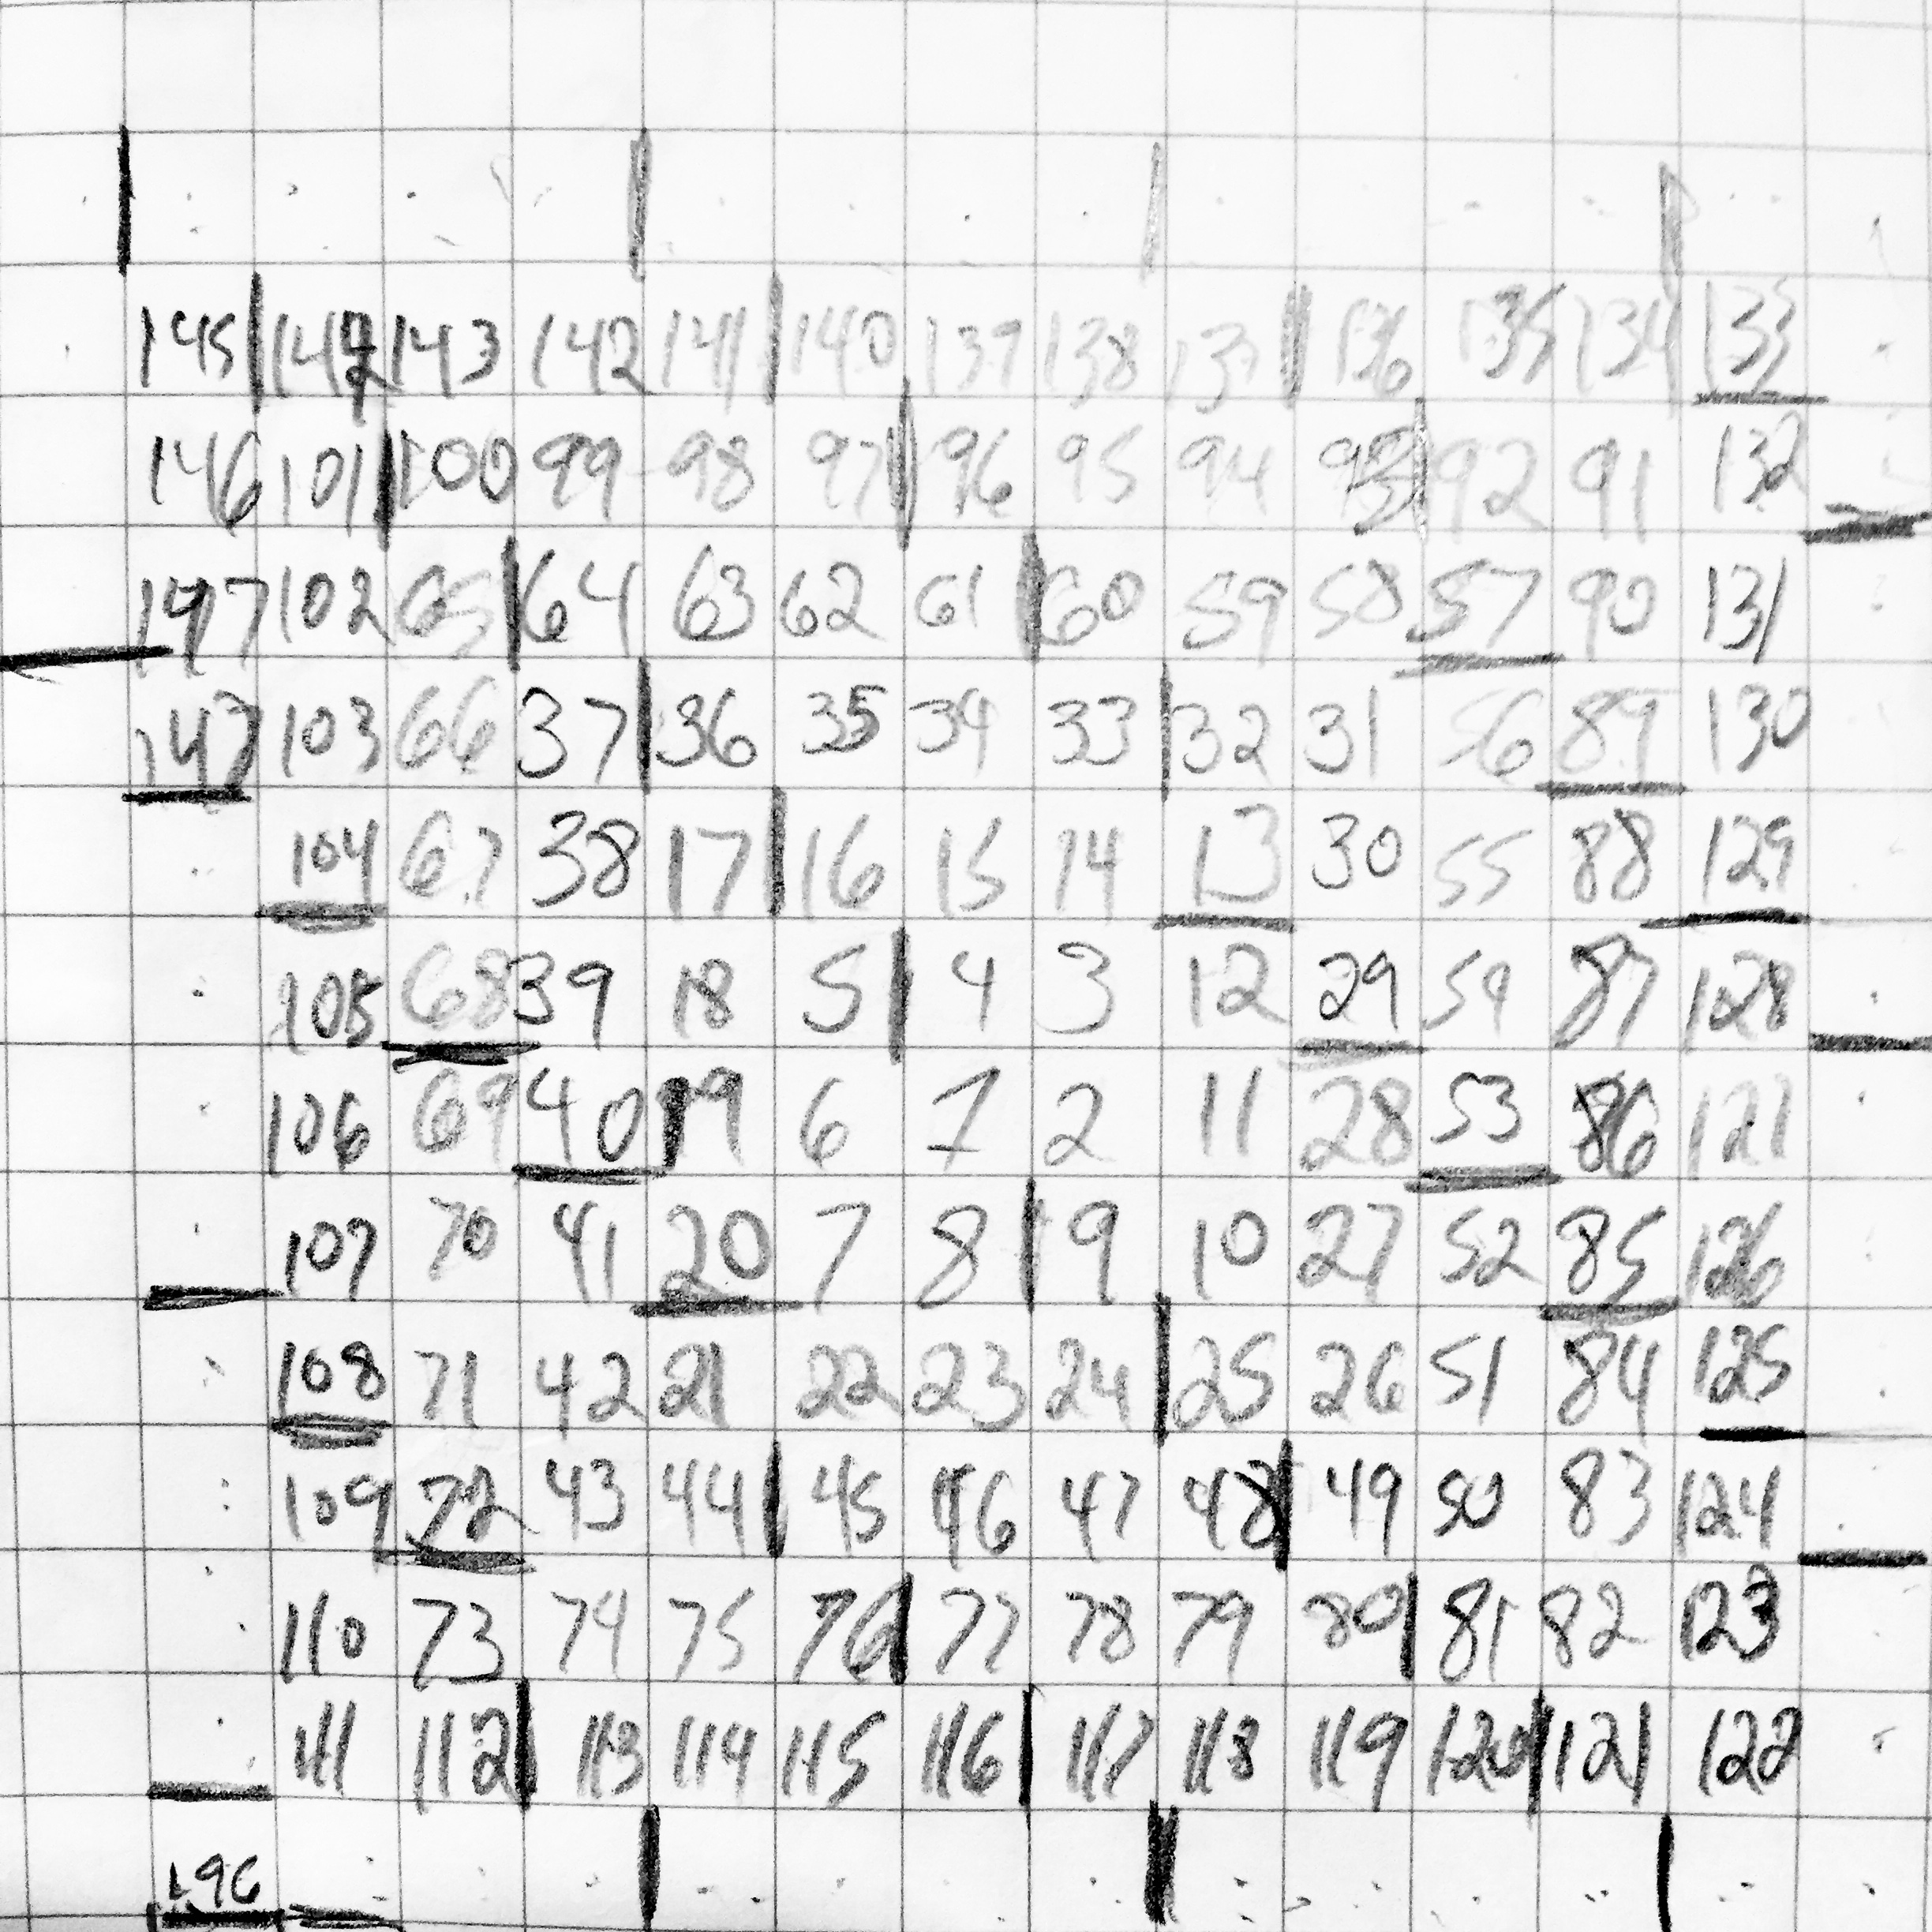 145 144 143 142 141 140 139 138 137 136 135 134 133
146 101 100 99 98 97 96 95 94 93 92 91 132
147 102 65 64 63 62 61 60 59 58 57 90 131
147 103 66 37 36 35 34 33 32 31 56 89 130
104 67 38 17 16 15 14 13 30 55 88 129
105 68 39 18 5 4 3 12 29 54 87 128
106 69 40 19 6 1 2 11 28 53 86 127
107 70 41 20 7 8 9 10 27 52 85 126
108 71 42 21 22 23 24 25 26 51 84 125
109 72 43 44 45 46 47 48 49 50 83 124
110 73 74 75 76 77 78 79 80 81 82 123
111 112 113 114 115 116 117 118 119 120 121 122
196